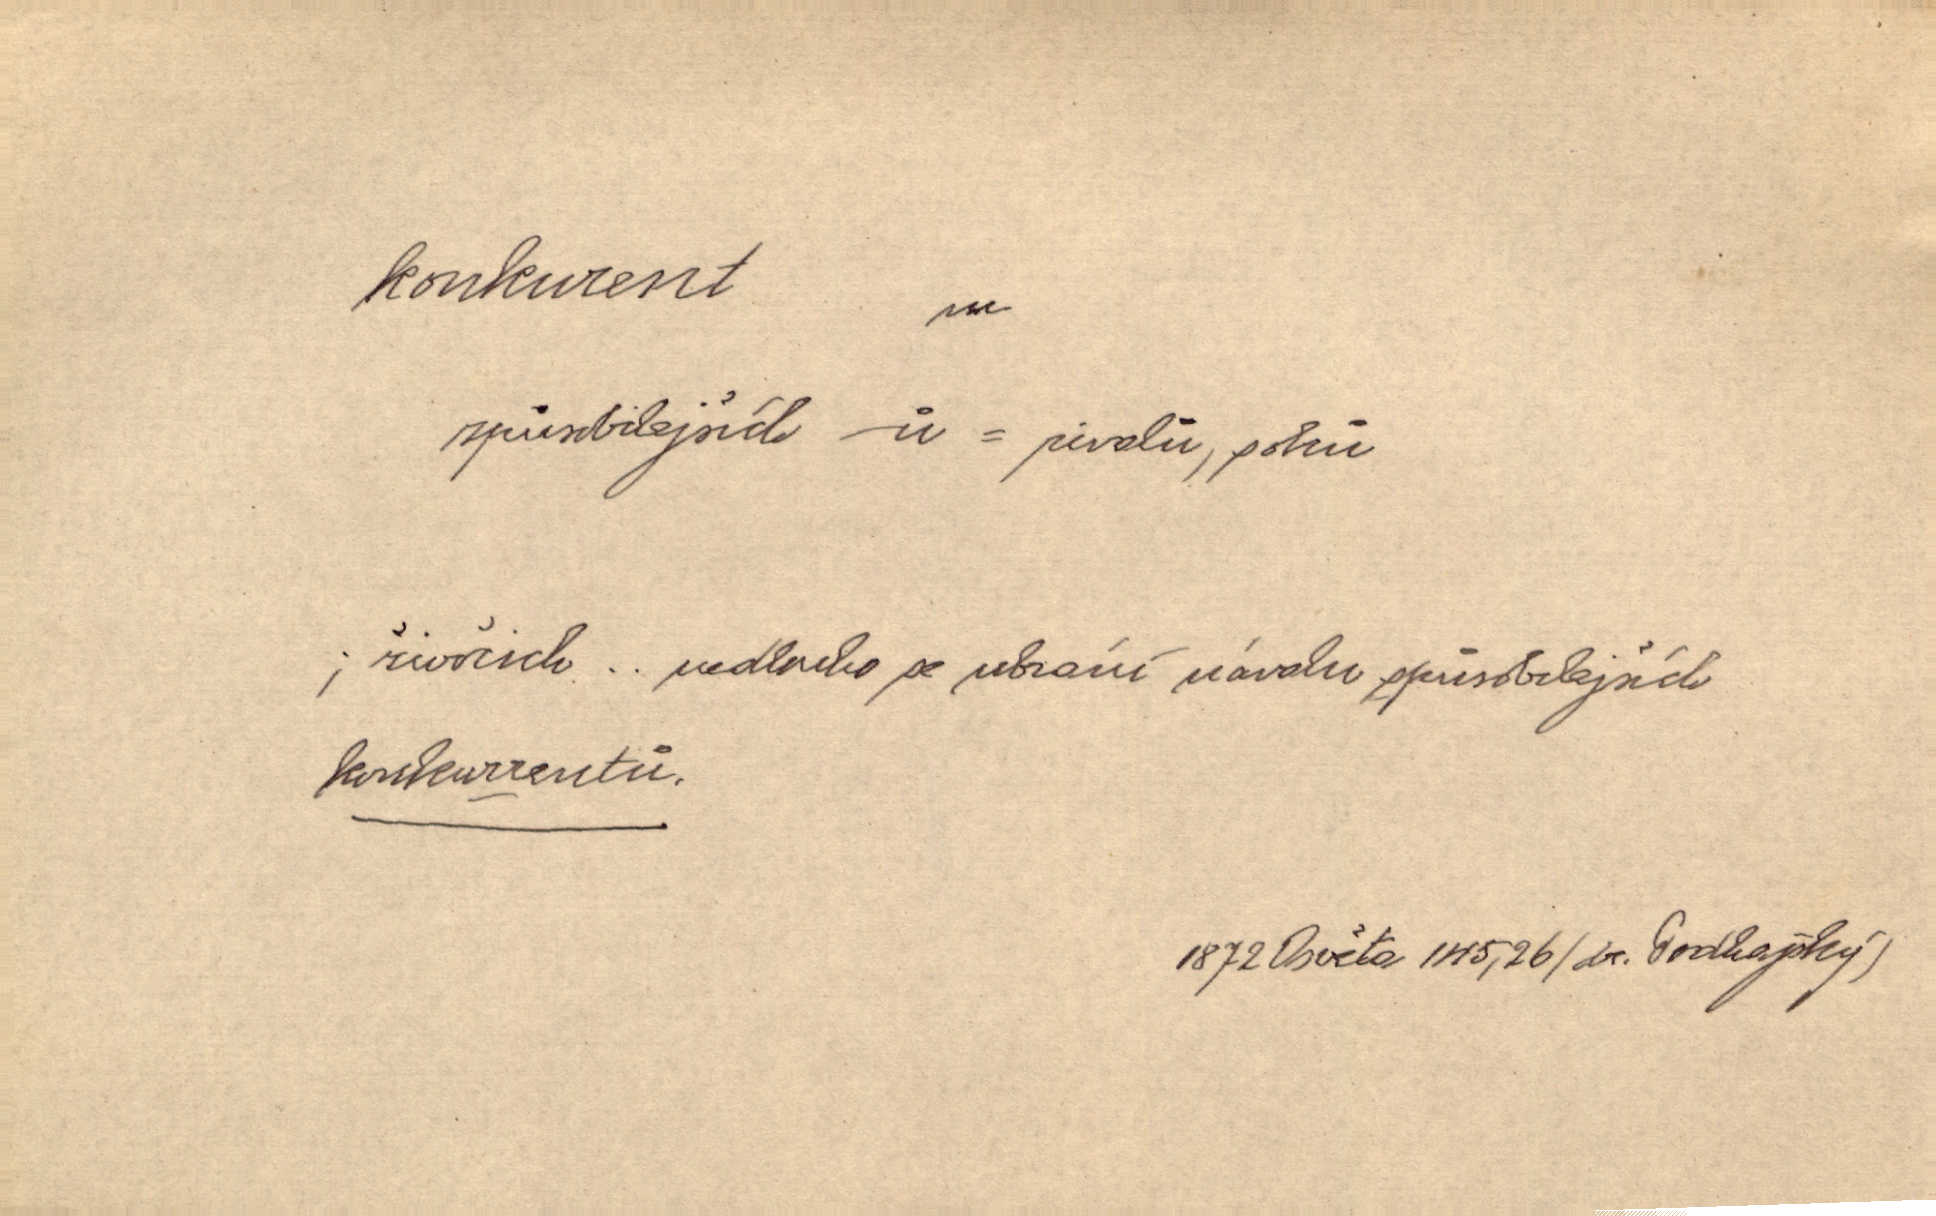 konkurent m
spůsobilejších -ů = rivalů, soků
; živočich .. nedlouho se ubrání návalu spůsobilejších
konkurrentů.
1872 Osvěta 145,26 (dr. Podhajský)